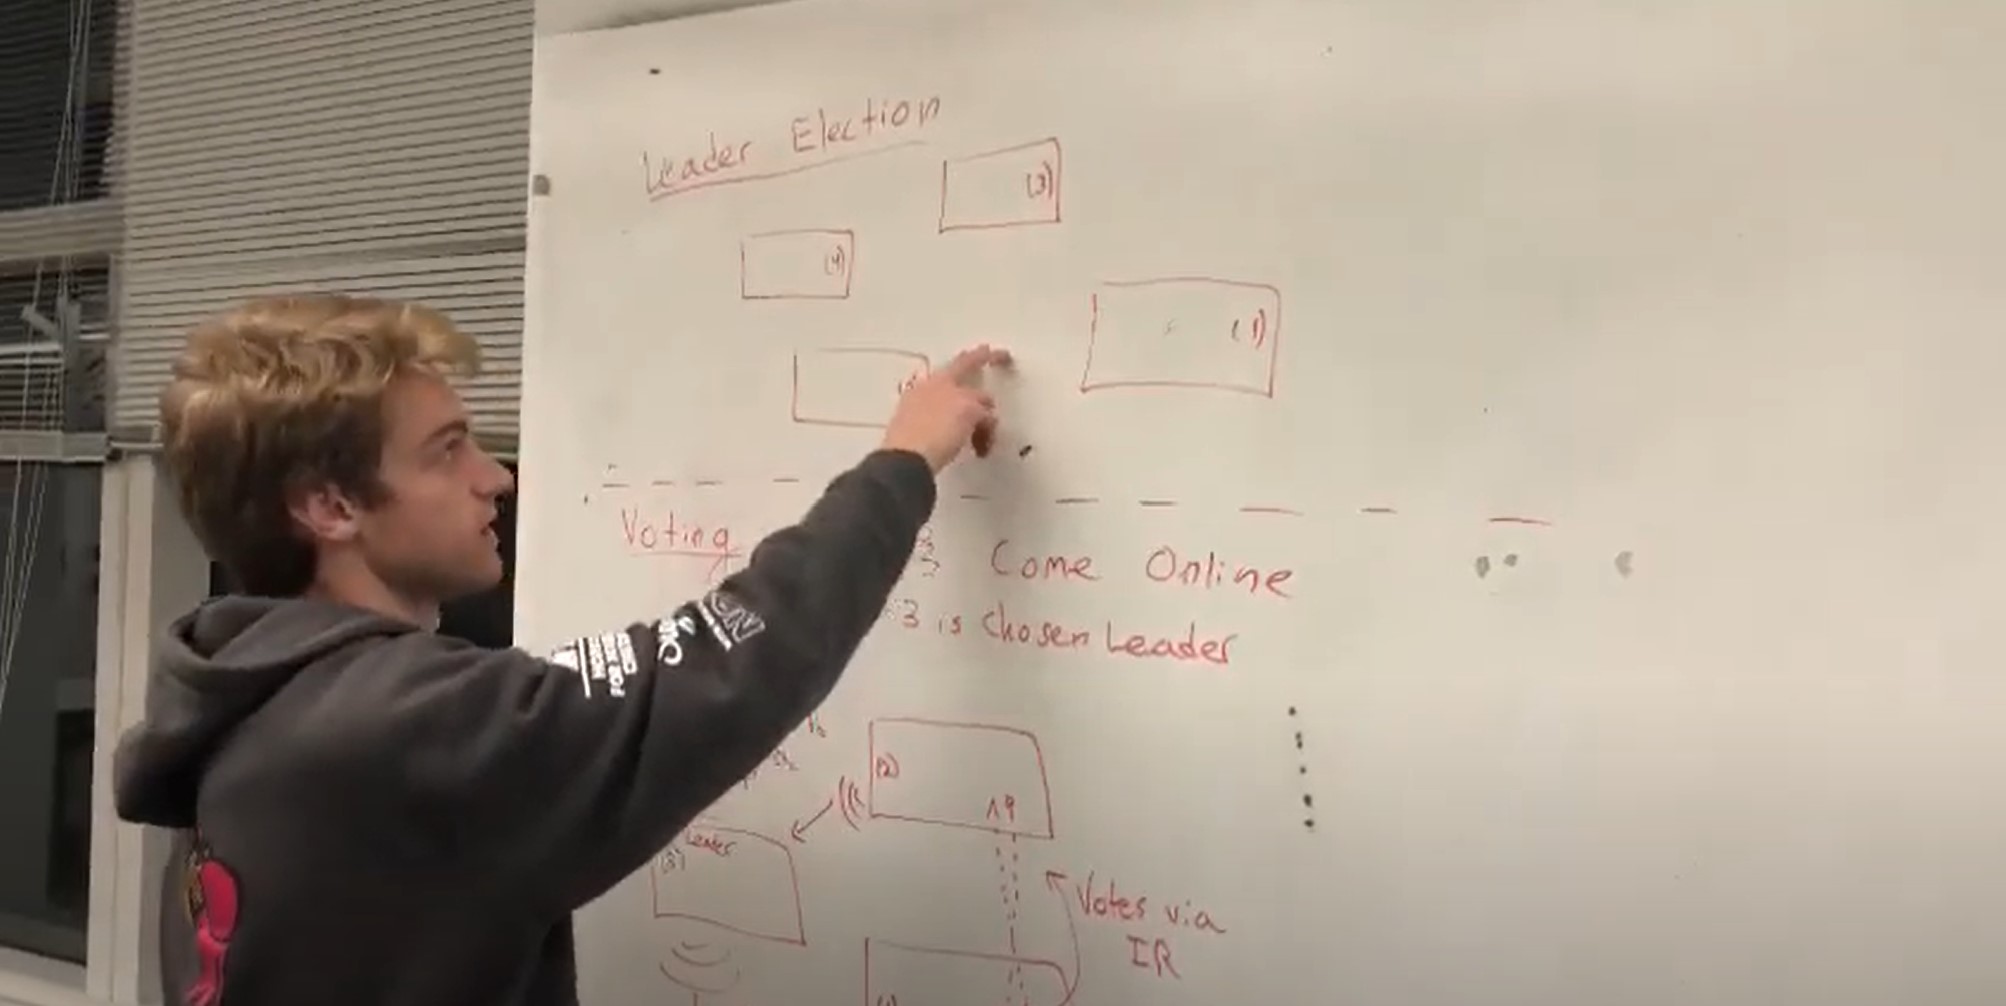 Leader Election
(3)
(4)
(1)
Voting
3 Come Online
3 is Chosen Leader
(2)
Leader
(3)
Votes via
IR